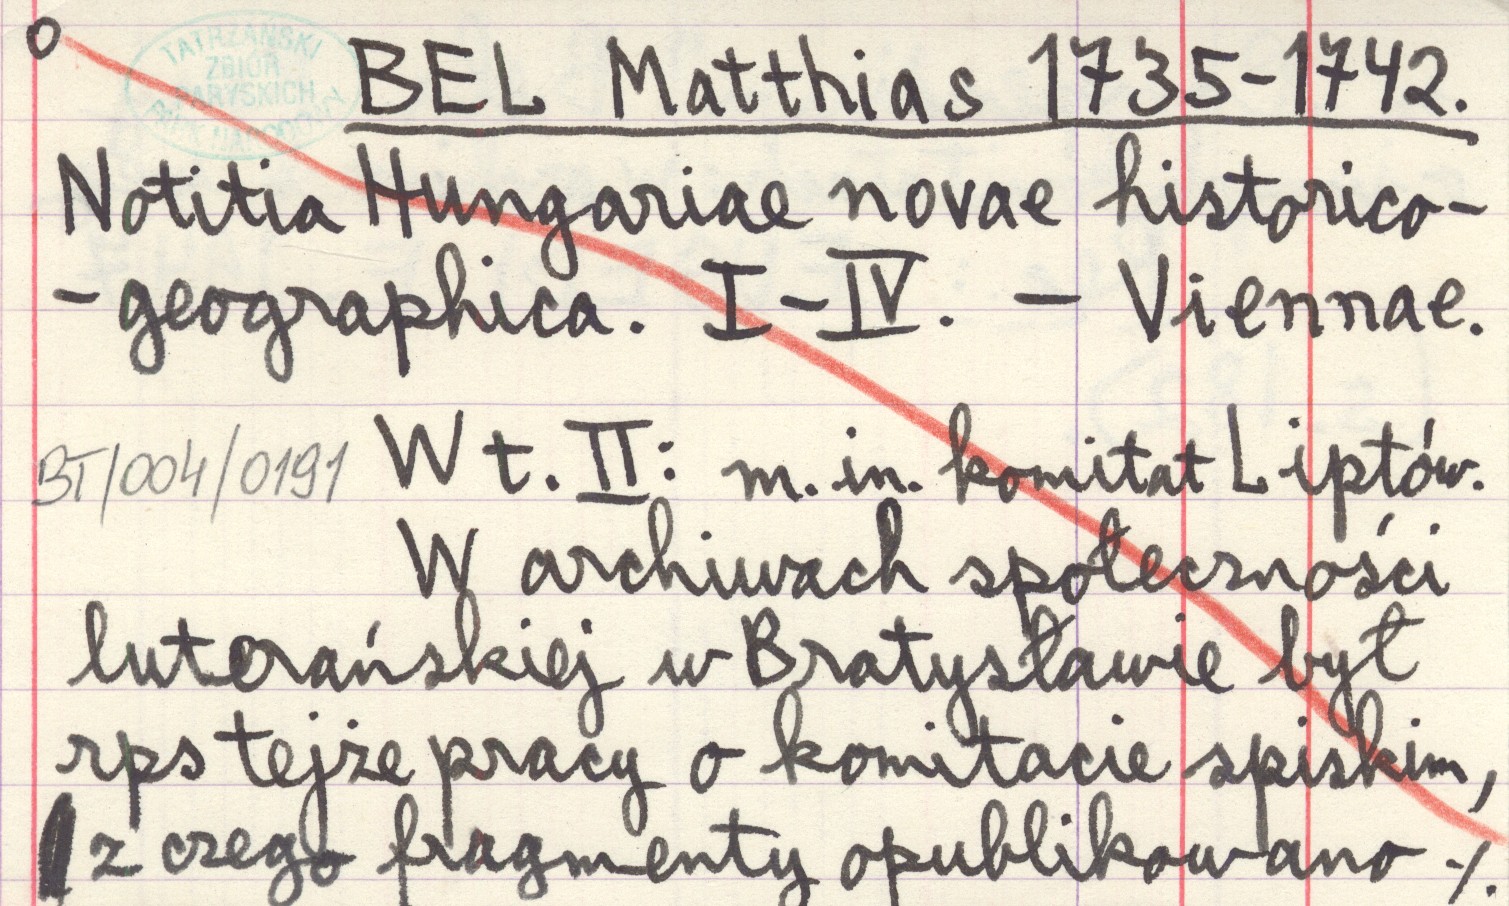 o
TATRZAŃSKI
ZBIÓR
PARYSKICH
BEL Matthias 1735-1742.
Notitia Hungariae novae historico-
-geographica. I-IV. - Viennae.
BT/004/0191
W t. II: m. in. komitat Liptów.
W archiwach społeczności
luterańskiej w Bratysławie był
rps tejże pracy o komitacie spiskim,
z czego fragmenty opublikowano ./.